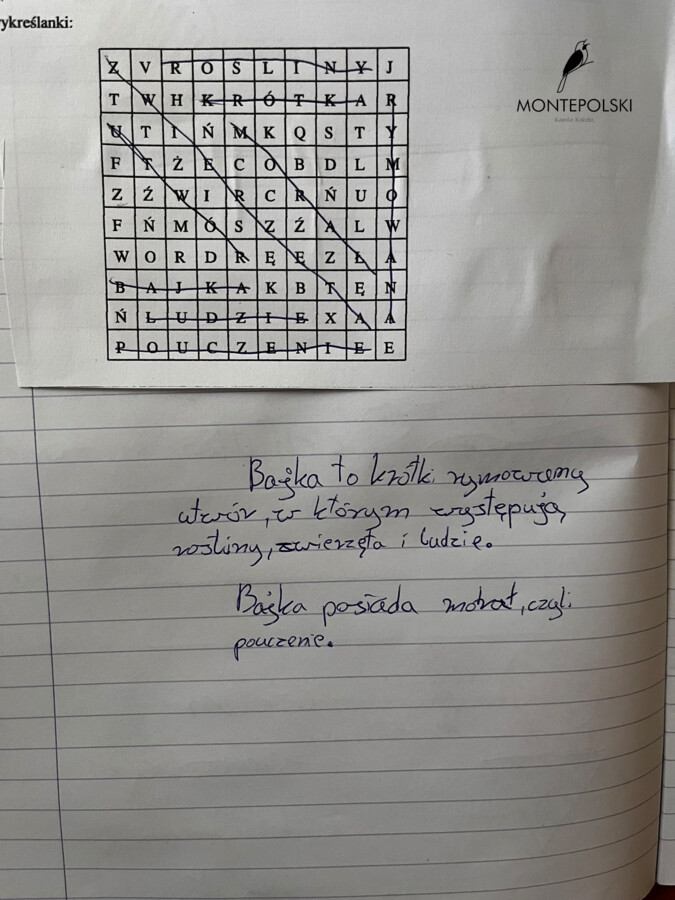 wykreślanki:
MONTEPOLSKI
Z V R O Ś L I N Y J
T W H K R Ó T K A R
U T I Ń M K Q S T Y
F T Ż E C O B D L M
Z Ź W I R C R Ń U O
F Ń M Ó S Z Ź A L W
W O R D R Ę Ę Z Ł A
B A J K A K B T Ę N
Ń L U D Z I E X A A
P O U C Z E N I E E
Bajka to krótki rymowany
utwór, w którym występują
rośliny, zwierzęta i ludzie.
Bajka posiada morał, czyli
pouczenie.